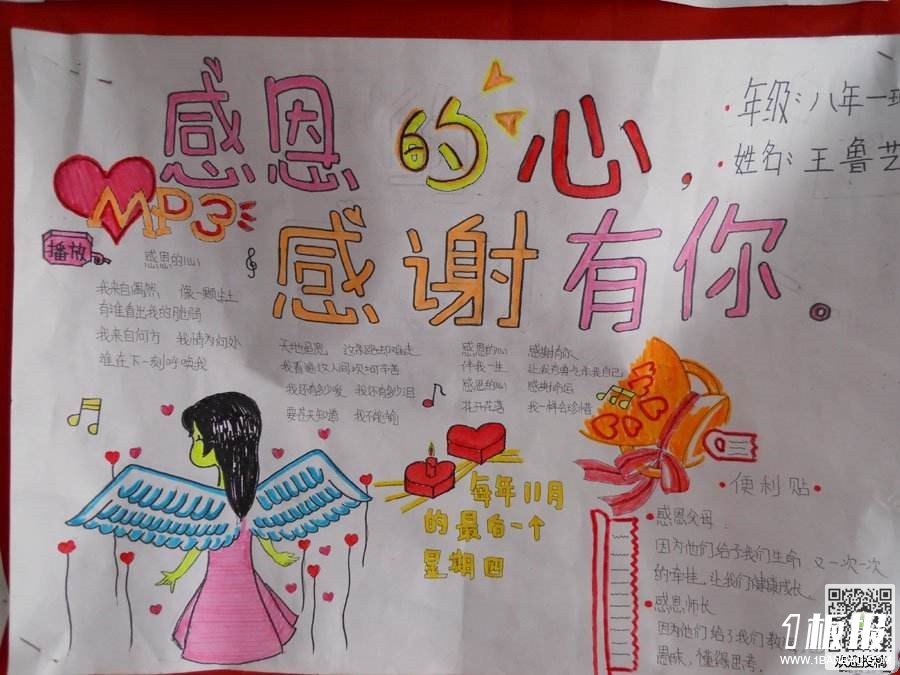 感恩的心，
感谢有你。
年级：八年一班
姓名：王鲁艺
MP3
播放
感恩的心
我来自偶然 像一颗尘土
有谁看出我的脆弱
我来自何方 我情归何处
谁在下一刻呼唤我
天地虽宽 这条路却难走
我看遍这人间坎坷辛苦
我还有多少爱 我还有多少泪
要苍天知道 我不认输
感恩的心 感谢有你
伴我一生 让我有勇气作我自己
感恩的心 感谢命运
花开花落 我一样会珍惜
每年11月
的最后一个
星期四
·便利贴·
·感恩父母：
因为他们给予我们生命 又一次一次
的牵挂，让我们健康成长。
·感恩师长
因为他们给了我们教
愚昧，懂得思考．
1板报
WWW.1BANBAO.COM
欢迎投稿